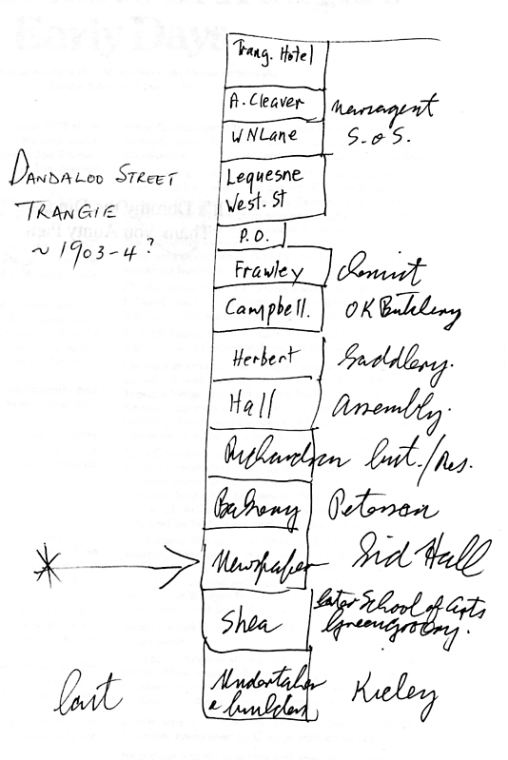 Trang. Hotel
A. Cleaver newsagent
W N Lane S. o S.
DANDALOO STREET
TRANGIE
~ 1903-4?
Lequesne
West. St
P.O.
Frawley Chemist
Campbell. OK Butchery
Herbert Saddlery.
Hall Assembly.
Richardson but./Res.
Bakery Peterson
Newspaper Sid Hall
Shea later School of Arts
Greengrocery.
Undertaker
& builders Kieley